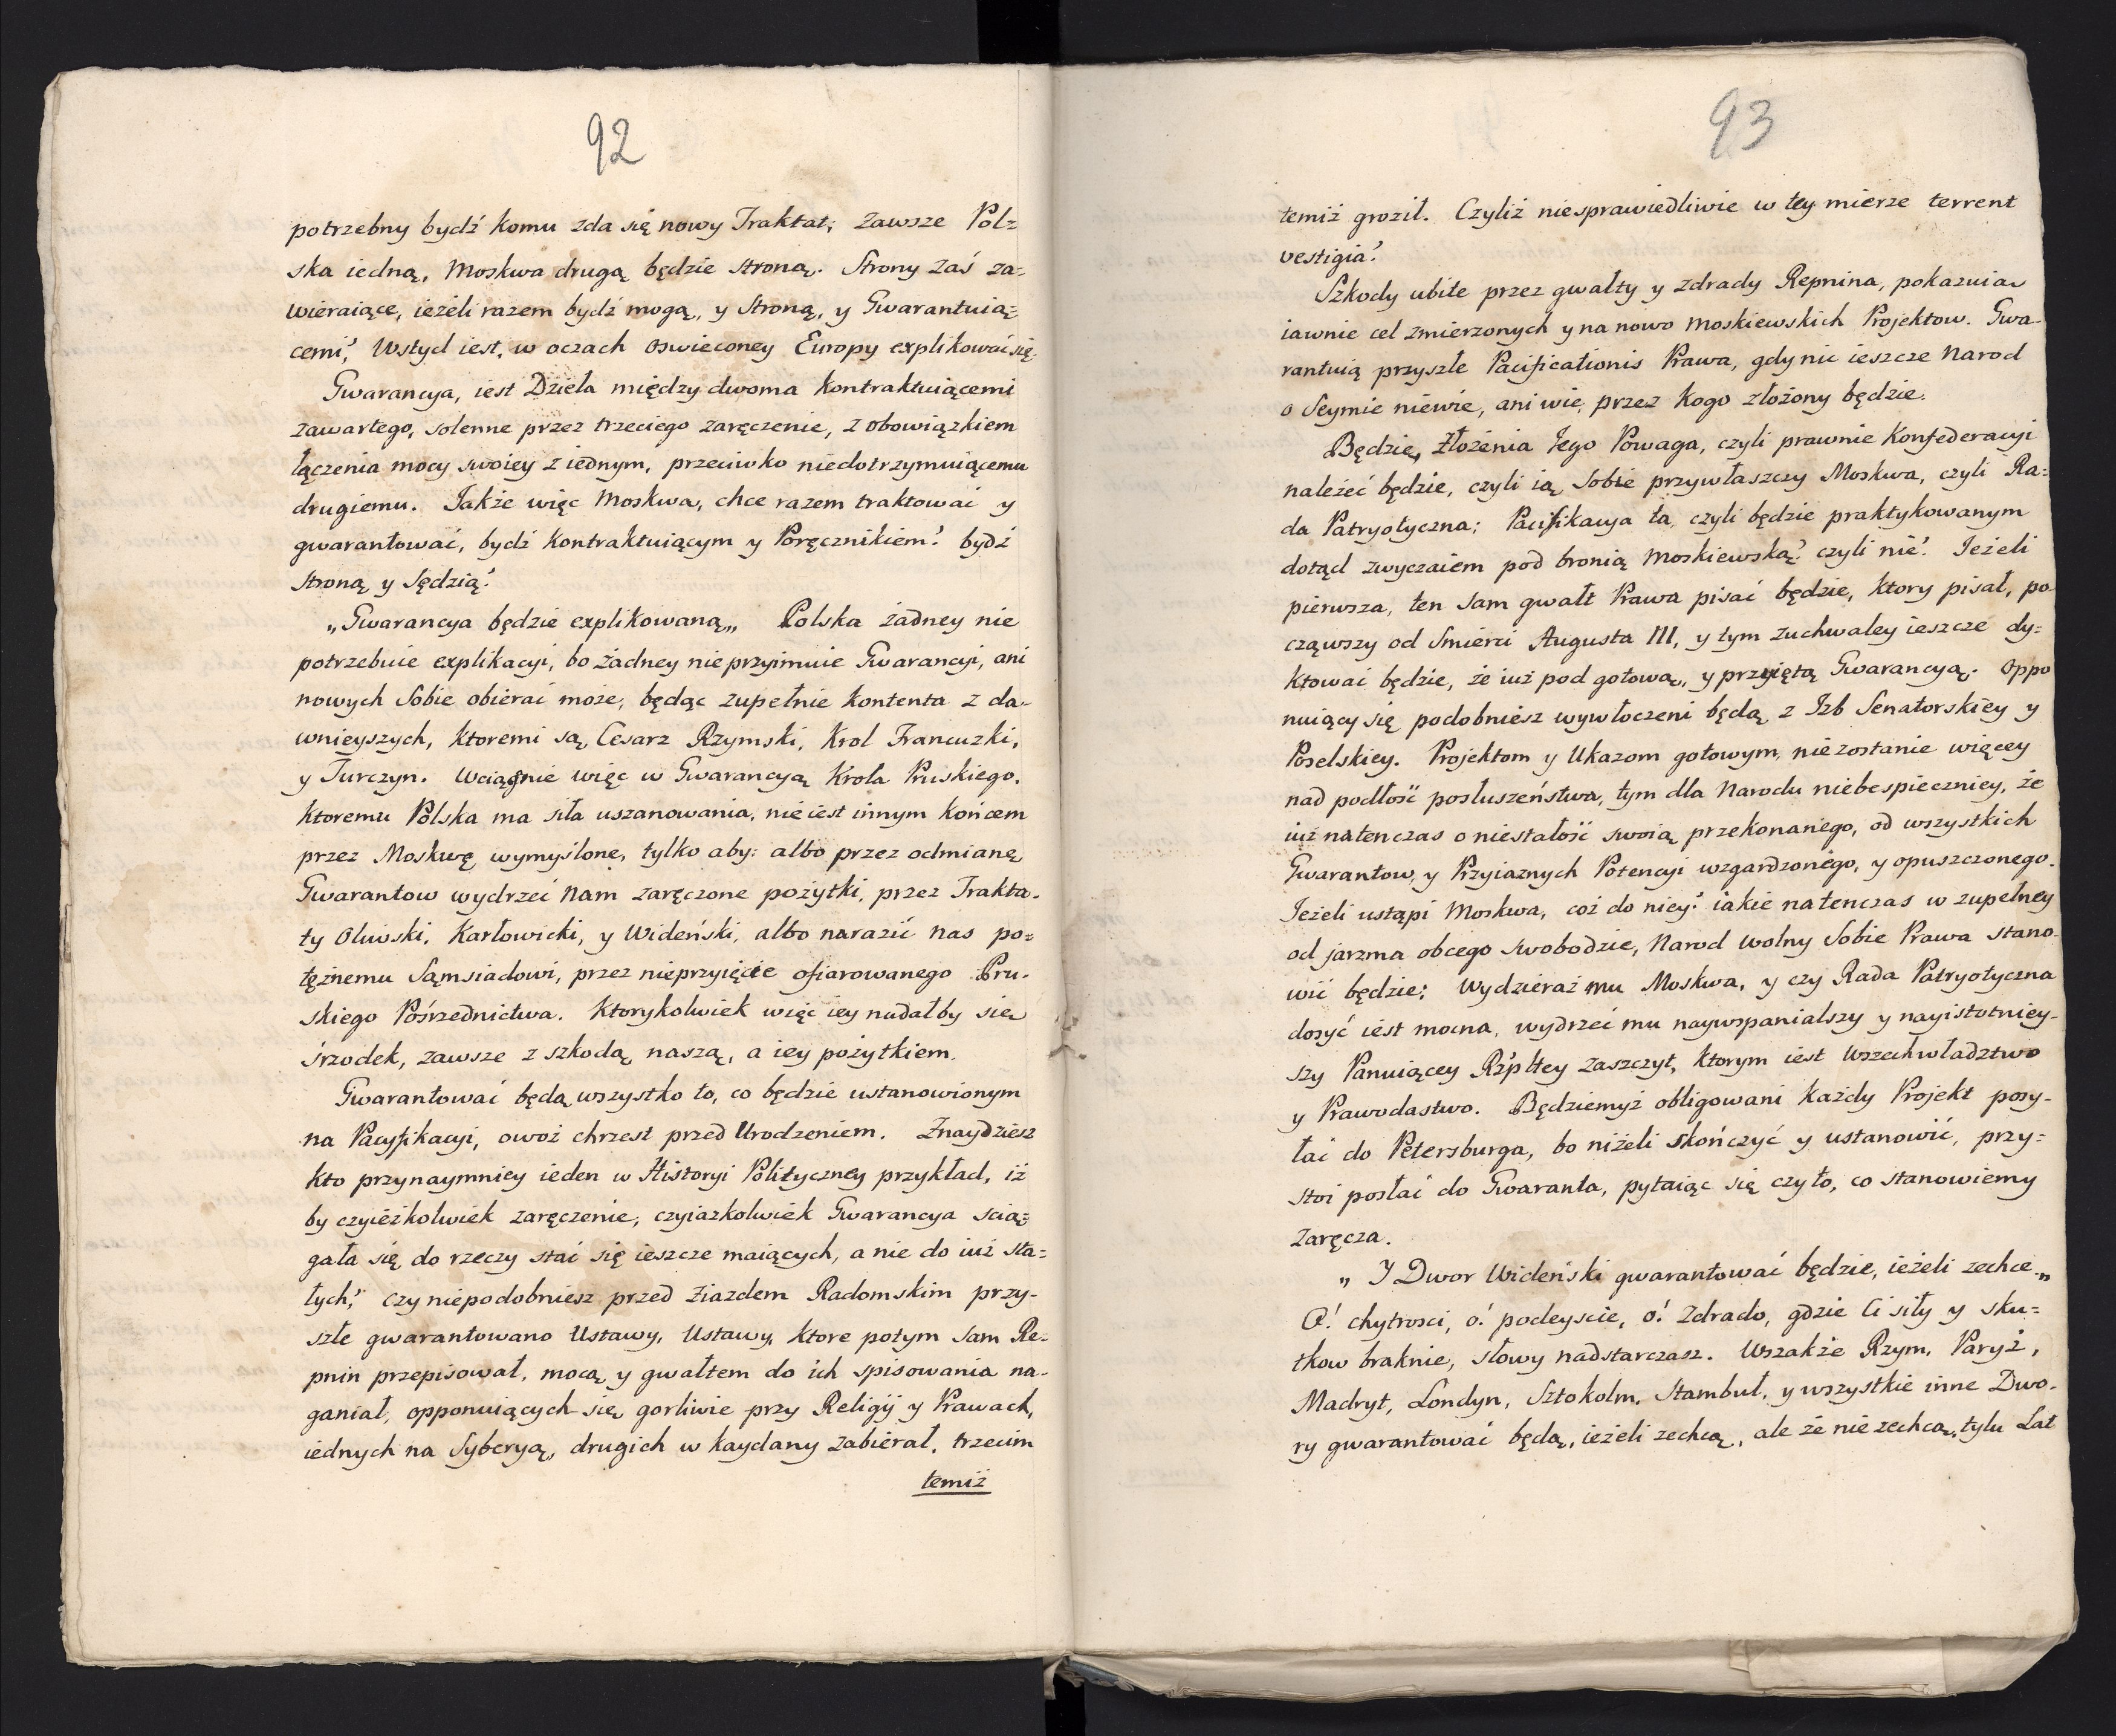 92
potrzebny bydź komu zda się nowy Traktat; zawsze Pol=
ska iedną, Moskwa drugą będzie stroną. Strony zaś za=
wieraiące, ieżeli razem bydź mogą, y Stroną, y Gwarantuią=
cemi? Wstyd iest, w oczach oswieconey Europy explikować się.
Gwarancya, iest Dzieła między dwoma kontraktuiącemi
zawartego, solenne przez trzeciego zaręczenie, z obowiązkiem
łączenia mocy swoiey z iednym, przeciwko niedotrzymuiącemu
drugiemu. Jakże więc Moskwa, chce razem traktować y
gwarantować, bydź kontraktuiącym y Poręcznikiem? bydź
stroną y Sędzią?
„Gwarancya będzie explikowaną„ Polska żadney nie
potrzebuie explikacyi, bo żadney nie przyimuie Gwarancyi, ani
nowych Sobie obierać może, będąc zupełnie kontenta z da-
wnieyszych, ktoremi są, Cesarz Rzymski, Krol Francuzki,
y Turczyn. Wciągnie więc w Gwarancyą Krola Pruskiego,
ktoremu Polska ma siła uszanowania, nie iest innym końcem
przez Moskwę wymyślone, tylko aby: albo przez odmianę
Gwarantow wydrzeć Nam zaręczone pożytki, przez Trakta-
ty Oliwski, Karłowicki, y Wideński, albo narazić nas po=
tężnemu Sąmsiadowi, przez nieprzyięcie ofiarowanego Pru-
skiego Pośrzednictwa. Ktorykolwiek więc iey nadałby się
śrzodek, zawsze z szkodą naszą, a iey pożytkiem.
Gwarantować będą wszystko to, co będzie ustanowionym
na Pacyfikacyi, owoż chrzest przed Urodzeniem. Znaydziesz
kto przynaymniey ieden w Historyi Polityczney przykład, iż
by czyieżkolwiek zaręczenie, czyiazkolwiek Gwarancya scią=
gała się do rzeczy stać się ieszcze maiących, a nie do iuż sta=
łych? czy niepodobniesz przed Ziazdem Radomskim przy-
szłe gwarantowano Ustawy, Ustawy, ktore potym sam Re=
pnin przepisował, mocą y gwałtem do ich spisowania na-
ganiał, opponuiących się gorliwie przy Religij y Prawach,
iednych na Syberyą, drugich w kaydany zabierał, trzecim
temiż
93
temiż groził. Czyliż niesprawiedliwie w tey mierze terrent
vestigia?
Szkody ubite przez gwałty y zdrady Repnina, pokazuia
iawnie cel zmierzonych y na nowo Moskiewskich Projektow. Gwa-
rantuią przyszłe Pacificationis Prawa, gdy nic ieszcze Narod
o Seymie niewie, ani wie, przez kogo złożony będzie.
Będzie, Złożenia Jego Powaga, czyli prawnie Konfederacyi
należeć będzie, czyli ią Sobie przywłaszczy Moskwa, czyli Ra=
da Patryotyczna; Pacifikacya ta, czyli będzie praktykowanym
dotąd zwyczaiem pod bronią Moskiewską? czyli nie? Jeżeli
pierwsza, ten sam gwałt Prawa pisać będzie, ktory pisał, po-
cząwszy od Smierci Augusta III, y tym zuchwaley ieszcze dy=
ktować będzie, że iuż pod gotową, y przyiętą Gwarancyą. Oppo
nuiący się podobniesz wywłoczeni będą z Izb Senatorskiey y
Poselskiey. Projektom y Ukazom gotowym, nie zostanie więcey
nad podłość posłuszeństwa, tym dla Narodu niebespieczniey, że
iuż natenczas o niestałość swoią przekonanego, od wszystkich
Gwarantow, y Przyiaznych Potencyi wzgardzonego, y opuszczonego.
Jeżeli ustąpi Moskwa, coż do niey? iakie natenczas w zupełney
od jarzma obcego Swobodzie, Narod wolny Sobie Prawa stano-
wić będzie; Wydzieraż mu Moskwa, y czy Rada Patryotyczna
dosyć iest mocna, wydrzeć mu naywspanialszy y nayistotniey-
szy Panuiącey Rzpltey zaszczyt, ktorym iest Wszechwładztwo
y Prawodastwo. Będziemyż obligowani każdy Projekt posy-
łać do Petersburga, bo niżeli skończyć y ustanowić, przy=
stoi posłać do Gwaranta, pytaiąc się czy to, co stanowiemy
zaręcza.
„ I Dwor Wideński gwarantować będzie, ieżeli zechce„
O! chytrosci, o! podeyscie, o! Zdrado, gdzie Ci siły y sku=
tkow braknie, słowy nadstarczasz. Wszakże Rzym, Paryż,
Madryt, Londyn, Sztokolm, Stambuł, y wszystkie inne Dwo-
ry gwarantować będą, ieżeli zechcą, ale że nie zechcą, tylu Lat